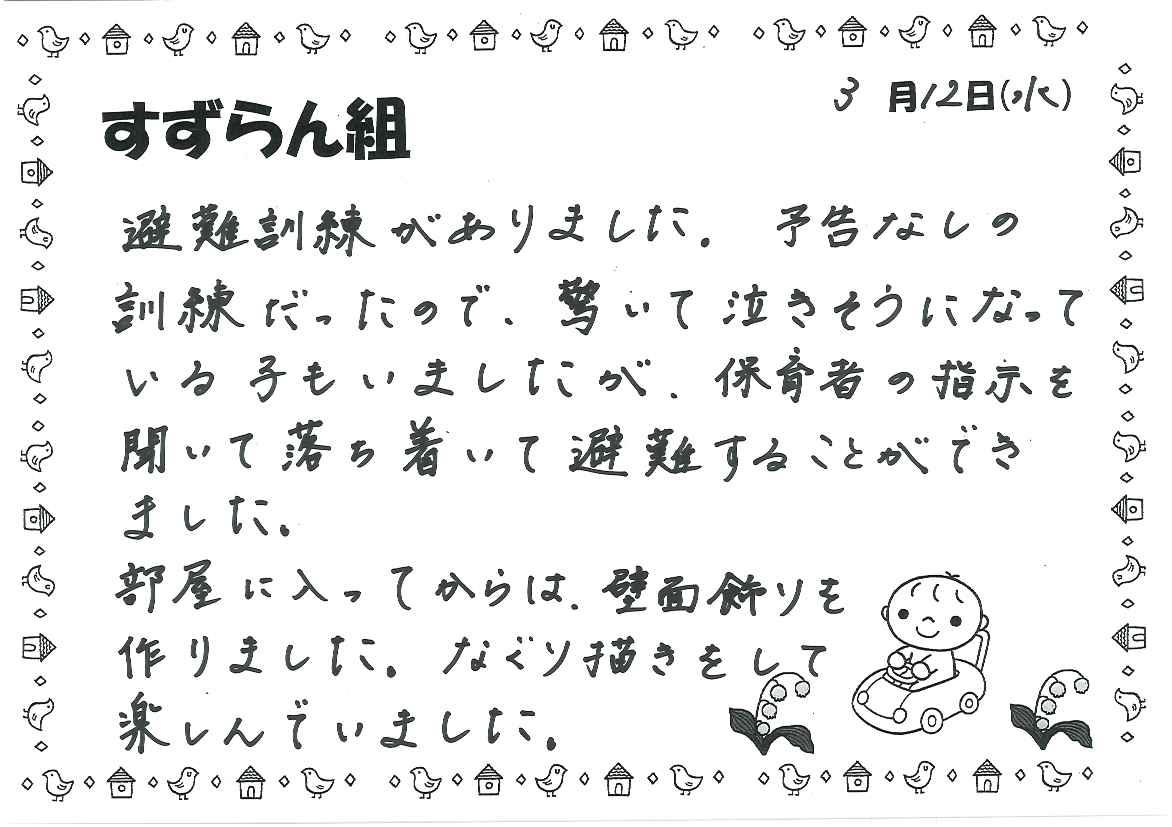 3月12日(水)
すずらん組
避難訓練がありました。予告なしの
訓練だったので、驚いて泣きそうになって
いる子もいましたが、保育者の指示を
聞いて落ち着いて避難することができ
ました。
部屋に入ってからは、壁面飾りを
作りました。なぐり描きをして
楽しんでいました。